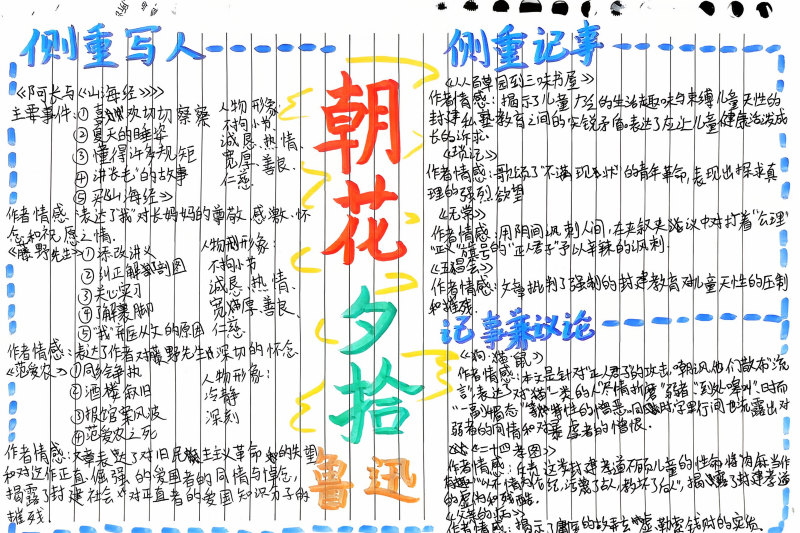 侧重写人
《阿长与《山海经》》
主要事件:①喜欢切切察察
②夏天的睡姿
③懂得许多规矩
④讲长毛的故事
⑤买《山海经》
人物形象:
不拘小节
诚恳、热情、
宽厚、善良、
仁慈
作者情感:表达了"我"对长妈妈的尊敬、感激、怀
念和祝愿之情.
《藤野先生》①添改讲义
②纠正解剖图
③关心实习
④了解裹脚
⑤"我"弃医从文的原因
人物形象:
不拘小节
诚恳、热情、
宽厚、善良、
仁慈
作者情感:表达了作者对藤野先生深切的怀念
《范爱农》①同乡争执
②酒楼叙旧
③报馆案风波
④范爱农之死
人物形象:
冷静
深刻
作者情感:文章表达了对旧民主主义革命的失望
和对这位正直、倔强的爱国者的同情与悼念,
揭露了封建社会对正直者的爱国知识分子的
摧残.
朝花夕拾
鲁迅
侧重记事
《从百草园到三味书屋》
作者情感:揭示了儿童广泛的生活趣味与束缚儿童天性的
封建私塾教育之间的尖锐矛盾,表达了应让儿童健康活泼成
长的诉求.
《琐记》
作者情感:歌颂了"不满现状"的青年革命,表现出探求真
理的强烈欲望
《无常》
作者情感:用阴间讽刺人间,在夹叙夹议中对打着"公理"
"正义"旗号的"正人君子"予以辛辣的讽刺.
《五猖会》
作者情感:文章批判了强制的封建教育对儿童天性的压制
和摧残.
记事兼议论
《狗·猫·鼠》
作者情感:本文是针对"正人君子"的攻击,嘲讽他们散布流
言,表达对"猫"一类的人"尽情折磨"弱者、"到处嗥叫"时而
"一副媚态"等特性的憎恶.同时字里行间也流露出对
弱者的同情和对暴虐者的憎恨.
《二十四孝图》
作者情感:
的虚伪和残酷.
《父亲的病》
作者情感:揭示了庸医的故弄玄虚勒索钱财的实质.